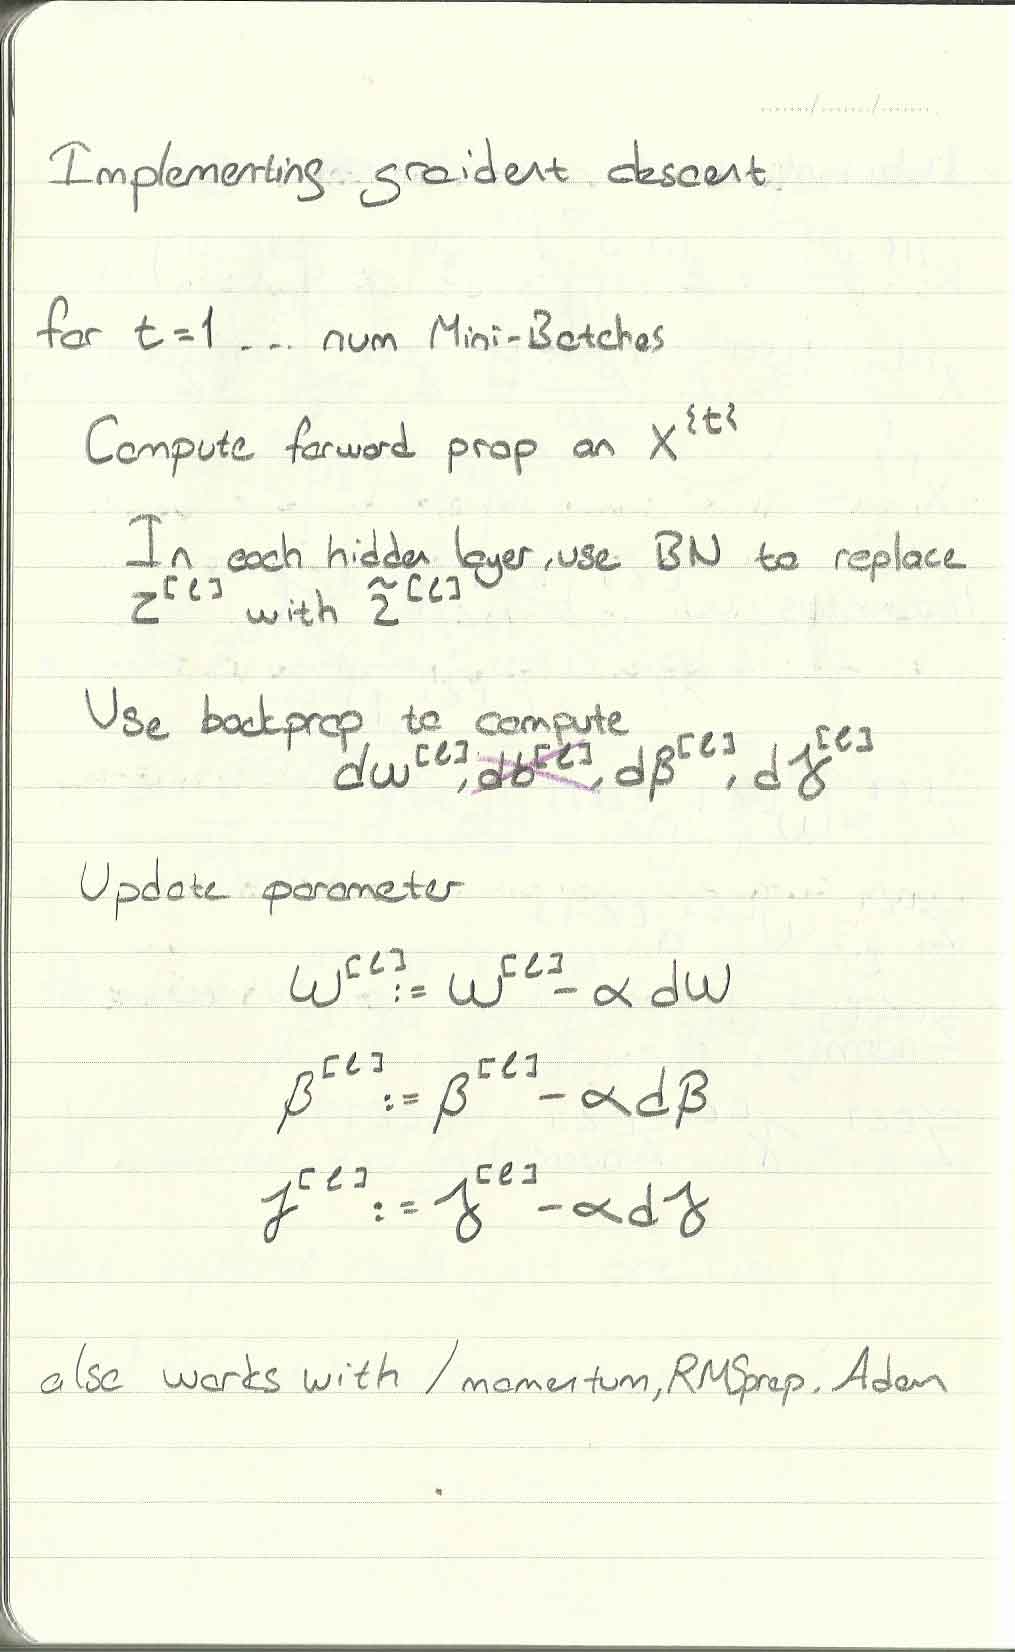 Implementing graident descent
for t=1 ... num Mini-Batches
Compute forward prop on X^{t{
In each hidden layer, use BN to replace
Z^[l] with Z̃^[l]
Use backprop to compute
dw^[l], db^[l], dβ^[l], dγ^[l]
Update parameter
W^[l] := W^[l] - α dW
β^[l] := β^[l] - α dβ
γ^[l] := γ^[l] - α dγ
also works with / momentum, RMSprop. Adam